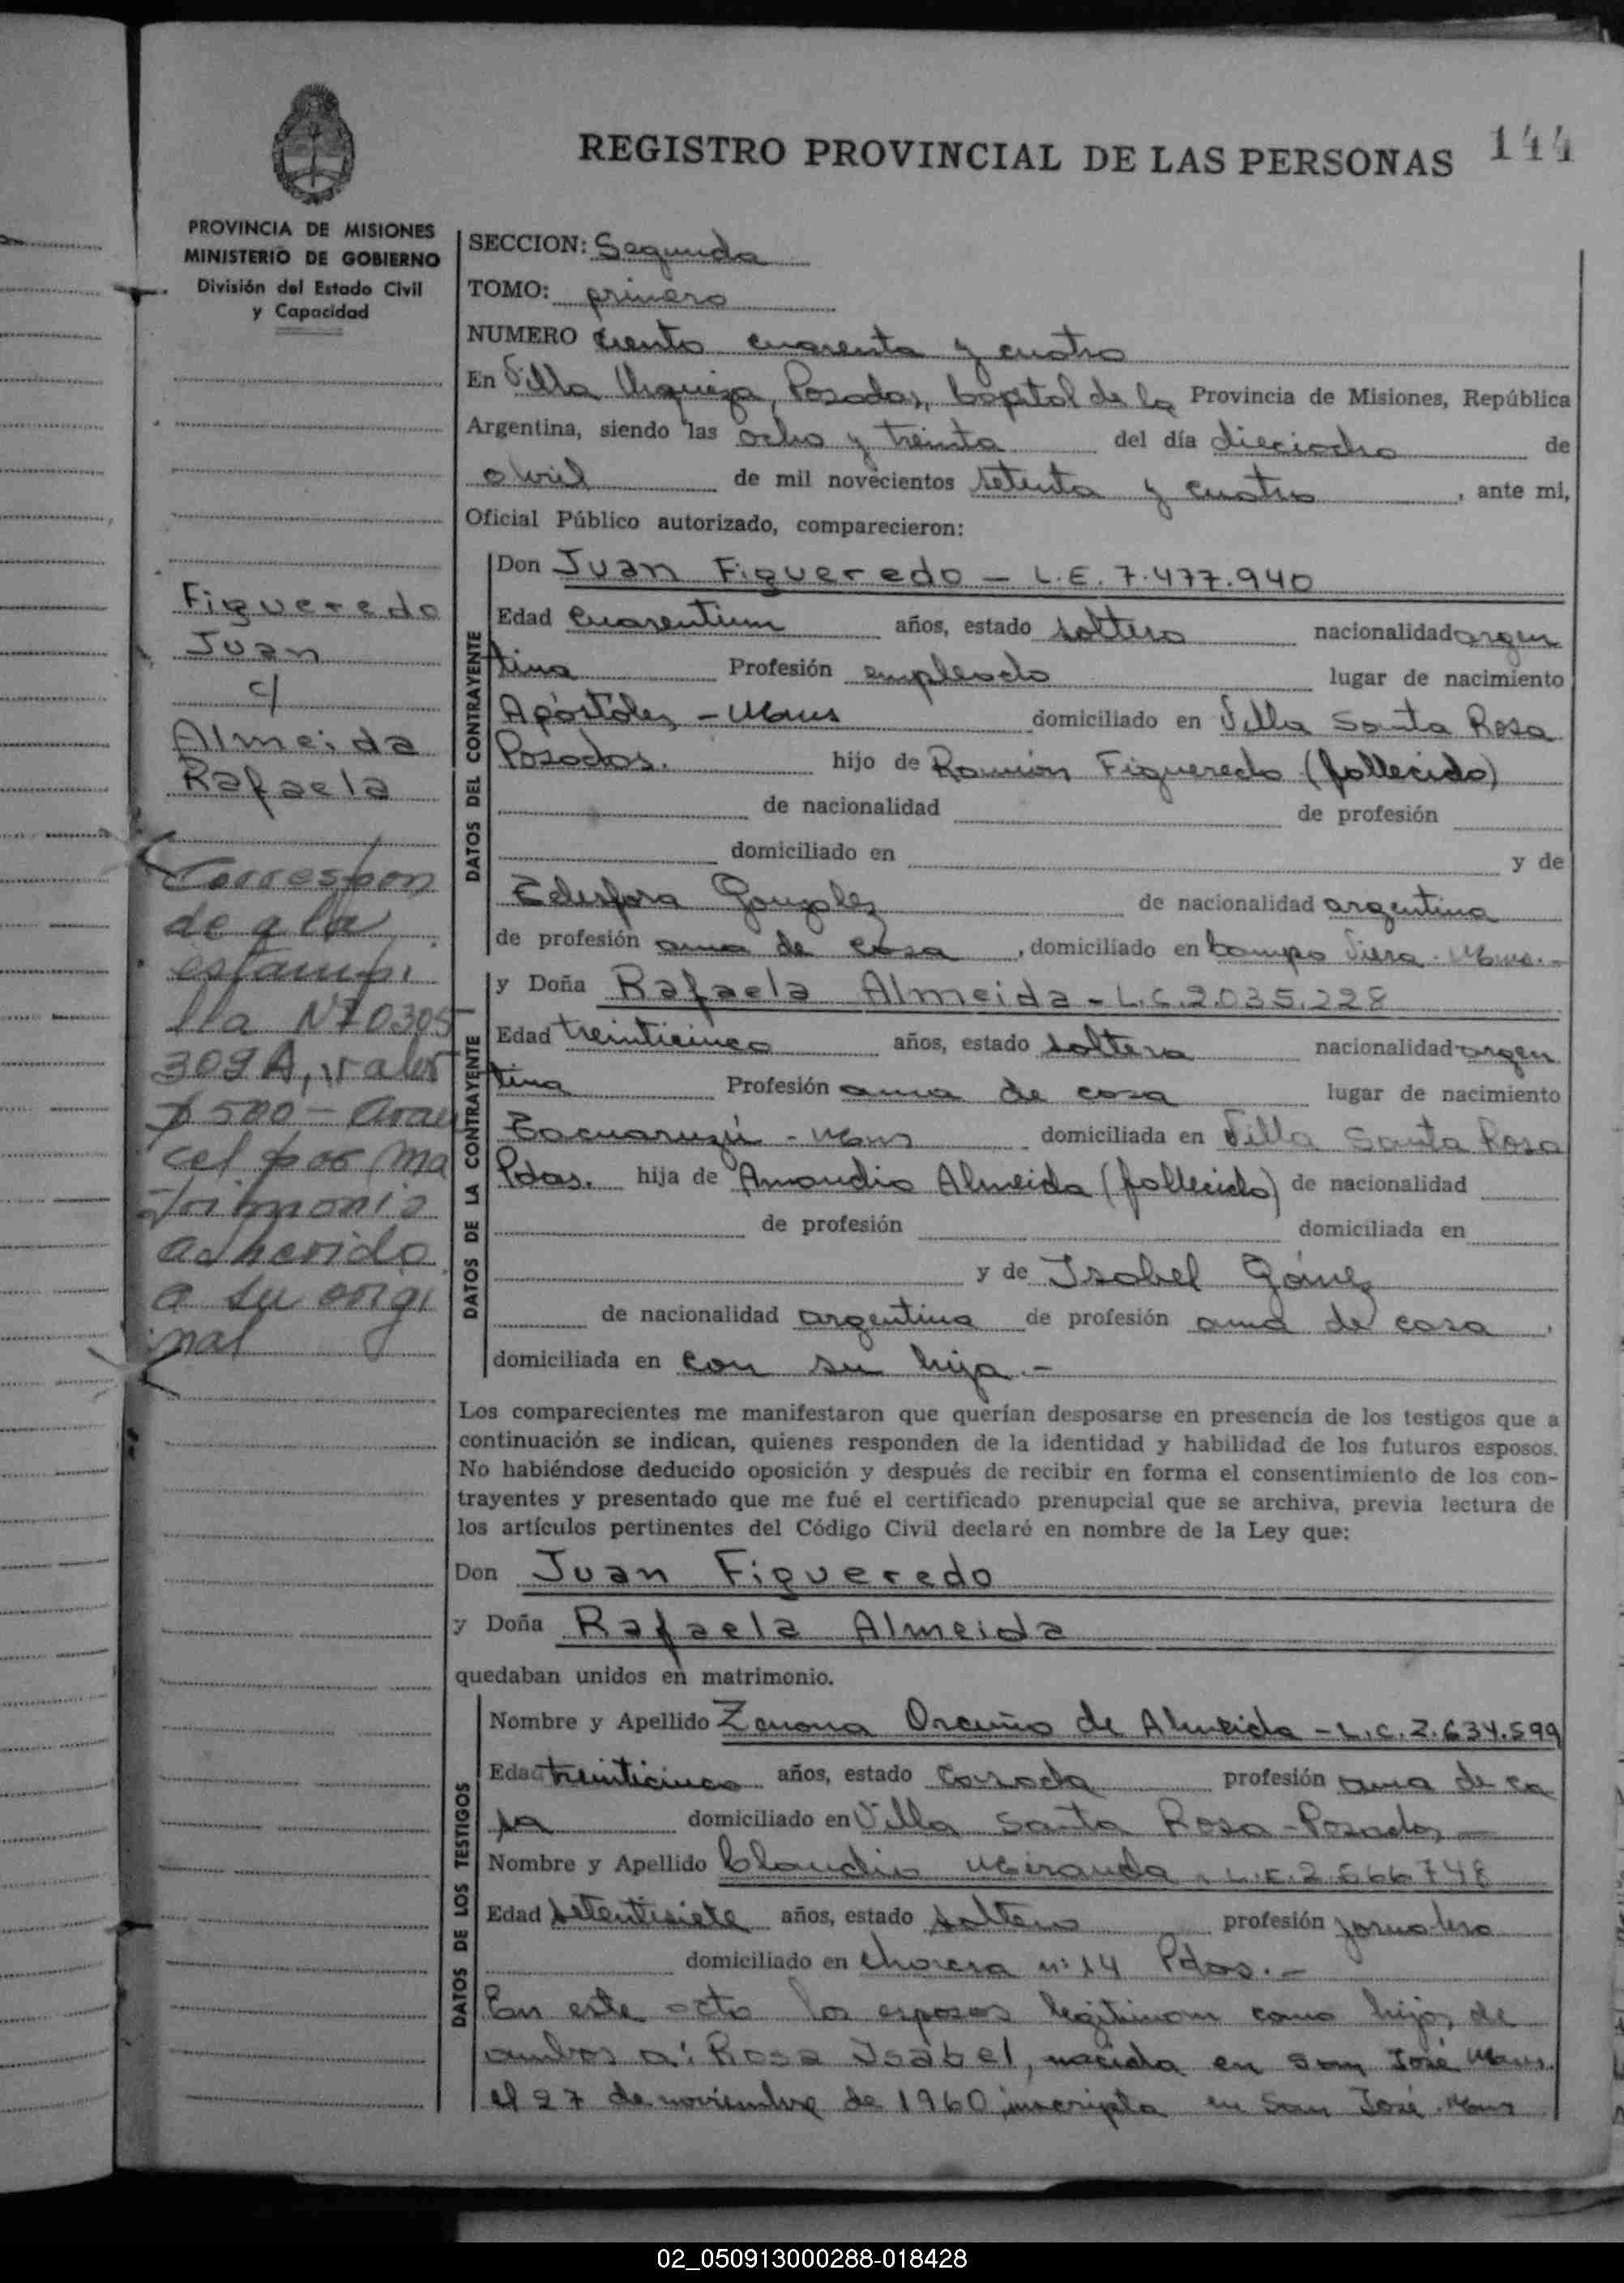 REGISTRO PROVINCIAL DE LAS PERSONAS 144
PROVINCIA DE MISIONES
MINISTERIO DE GOBIERNO
División del Estado Civil
y Capacidad
Figueredo
Juan
c/
Almeida
Rafaela
Correspon
de a la
estampi
lla Nº 0305
309 A, valor
$ 500 - Aran
cel por Ma
trimonio
adherido
a su origi
nal
SECCION: Segunda
TOMO: primero
NUMERO ciento cuarenta y cuatro
En Villa Urquiza, Posadas, Capital de la Provincia de Misiones, República
Argentina, siendo las ocho y treinta del día dieciocho de
abril de mil novecientos setenta y cuatro, ante mi,
Oficial Público autorizado, comparecieron:
DATOS DEL CONTRAYENTE
Don Juan Figueredo - L.E. 7.477.940
Edad cuarentiun años, estado soltero nacionalidad argen
tina Profesión empleado lugar de nacimiento
Apóstoles - Mnes domiciliado en Villa Santa Rosa
Posadas. hijo de Ramón Figueredo (fallecido)
de nacionalidad de profesión
domiciliado en y de
Gonzalez de nacionalidad argentina
de profesión ama de casa, domiciliado en Campo Viera - Mnes.-
DATOS DE LA CONTRAYENTE
y Doña Rafaela Almeida - L.C. 2.035.228
Edad treinticinco años, estado soltera nacionalidad argen
tina Profesión ama de casa lugar de nacimiento
- Mnes domiciliada en Villa Santa Rosa
Pdas. hija de Amandio Almeida (fallecido) de nacionalidad
de profesión domiciliada en
y de Isabel Gómez
de nacionalidad argentina de profesión ama de casa,
domiciliada en con su hija.-
Los comparecientes me manifestaron que querían desposarse en presencia de los testigos que a
continuación se indican, quienes responden de la identidad y habilidad de los futuros esposos.
No habiéndose deducido oposición y después de recibir en forma el consentimiento de los con-
trayentes y presentado que me fué el certificado prenupcial que se archiva, previa lectura de
los artículos pertinentes del Código Civil declaré en nombre de la Ley que:
Don Juan Figueredo
y Doña Rafaela Almeida
quedaban unidos en matrimonio.
DATOS DE LOS TESTIGOS
Nombre y Apellido Zenona de Almeida - L.C. 2.634.599
Edad treinticinco años, estado casada profesión ama de ca
sa domiciliado en Villa Santa Rosa - Posadas -
Nombre y Apellido Claudio Miranda - L.E. 2.566.748
Edad setentisiete años, estado soltero profesión jornalero
domiciliado en chacra nº 14 Pdas.-
En este acto los esposos legitiman como hijos de
ambos a: Rosa Isabel, nacida en San José Mnes.
el 27 de noviembre de 1960 inscripta en San José - Mnes
02_050913000288-018428